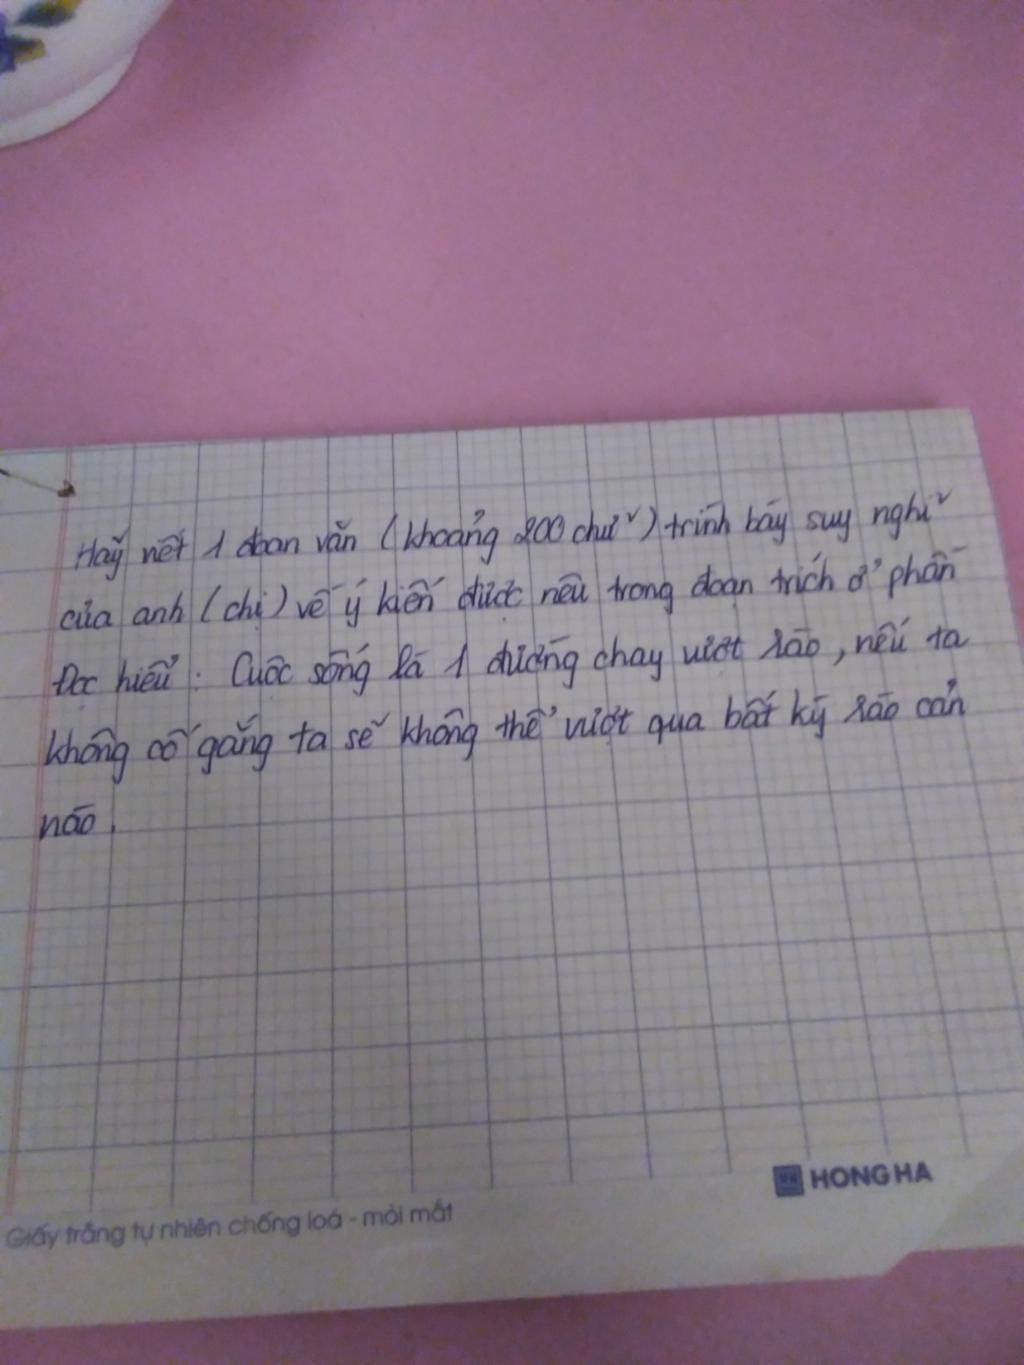 Hãy viết 1 đoạn văn (khoảng 200 chữ) trình bày suy nghĩ
của anh (chị) về ý kiến được nêu trong đoạn trích ở phần
Đọc hiểu: Cuộc sống là 1 đường chạy vượt rào, nếu ta
không cố gắng ta sẽ không thể vượt qua bất kỳ rào cản
nào.
HONG HA
Giấy trắng tự nhiên chống loá - mỏi mắt